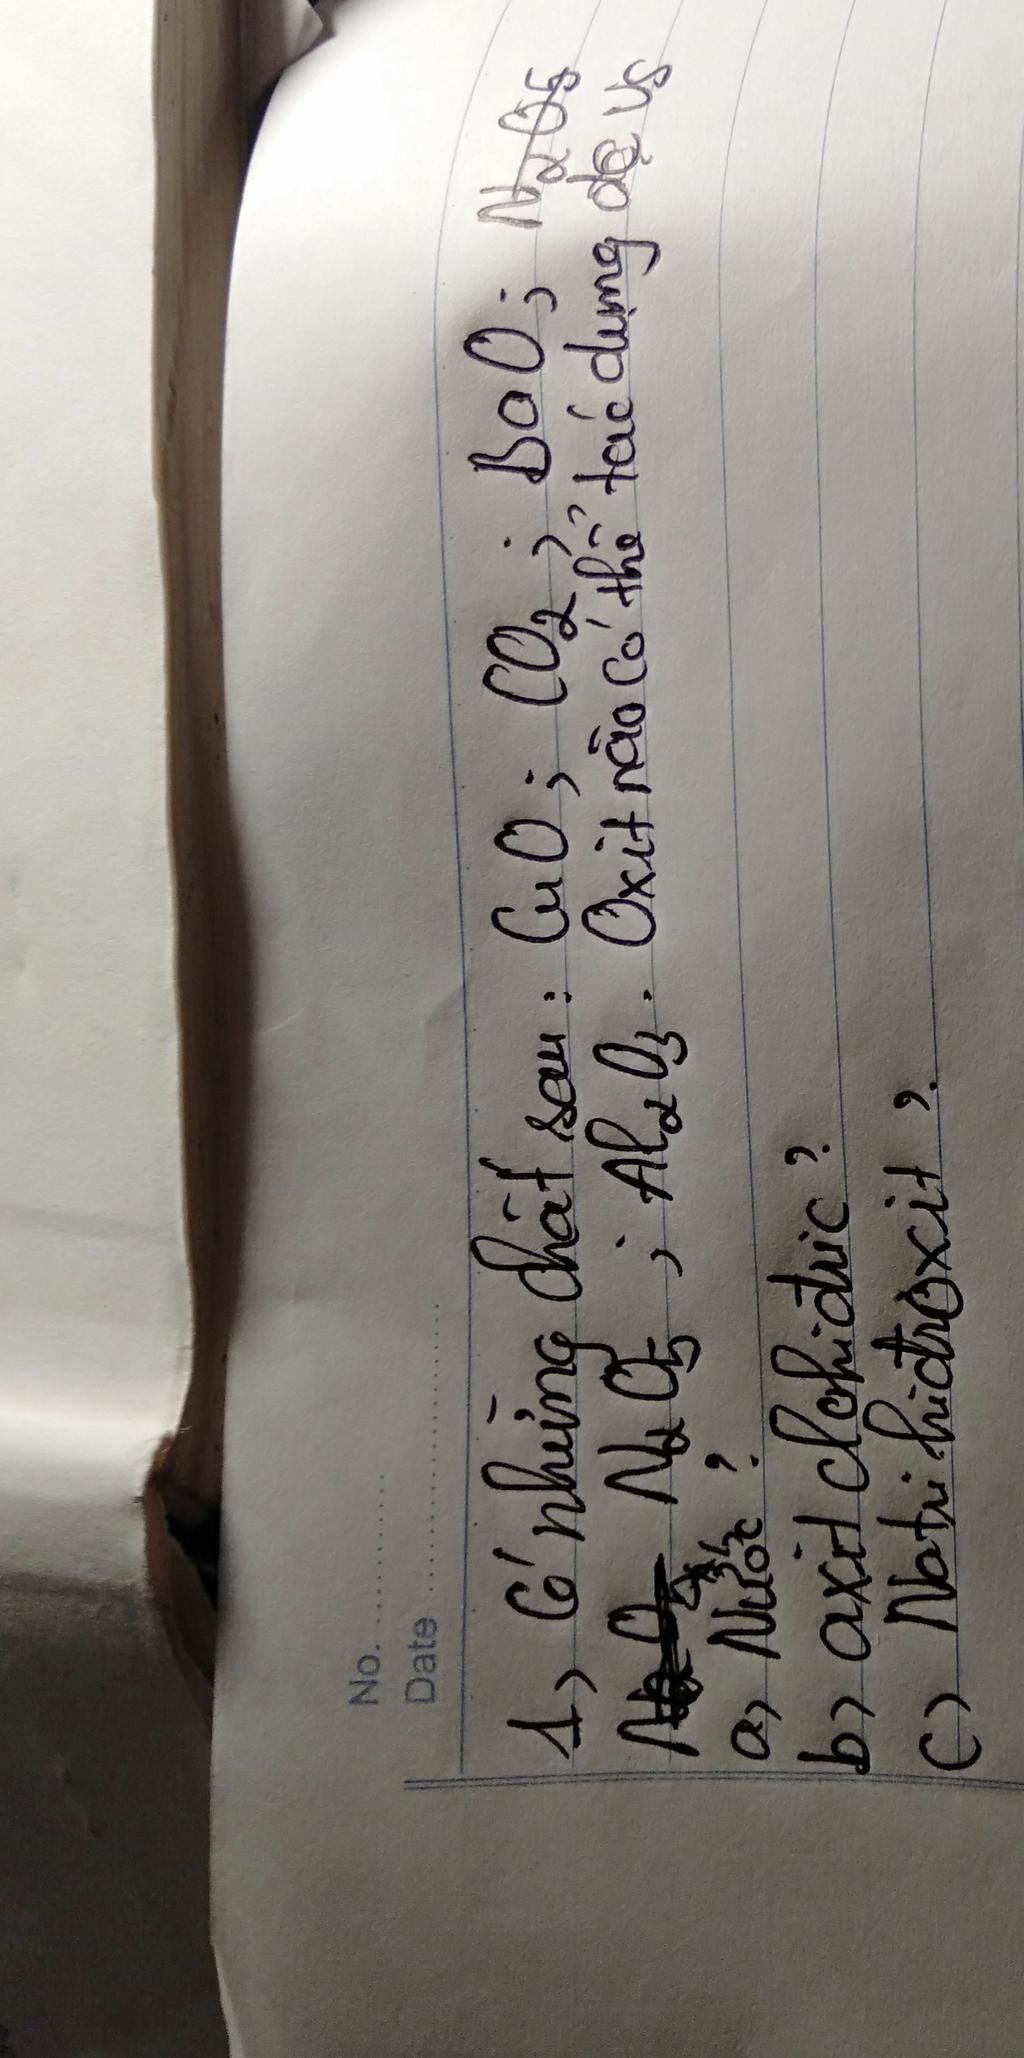 No.
Date
1, Có những chất sau: CuO; CO2; BaO; N2O5
N2O5; Al2O3. Oxit nào có thể tác dụng đc vs
a, Nước?
b, axit clohidric?
c, Natri hidroxit?